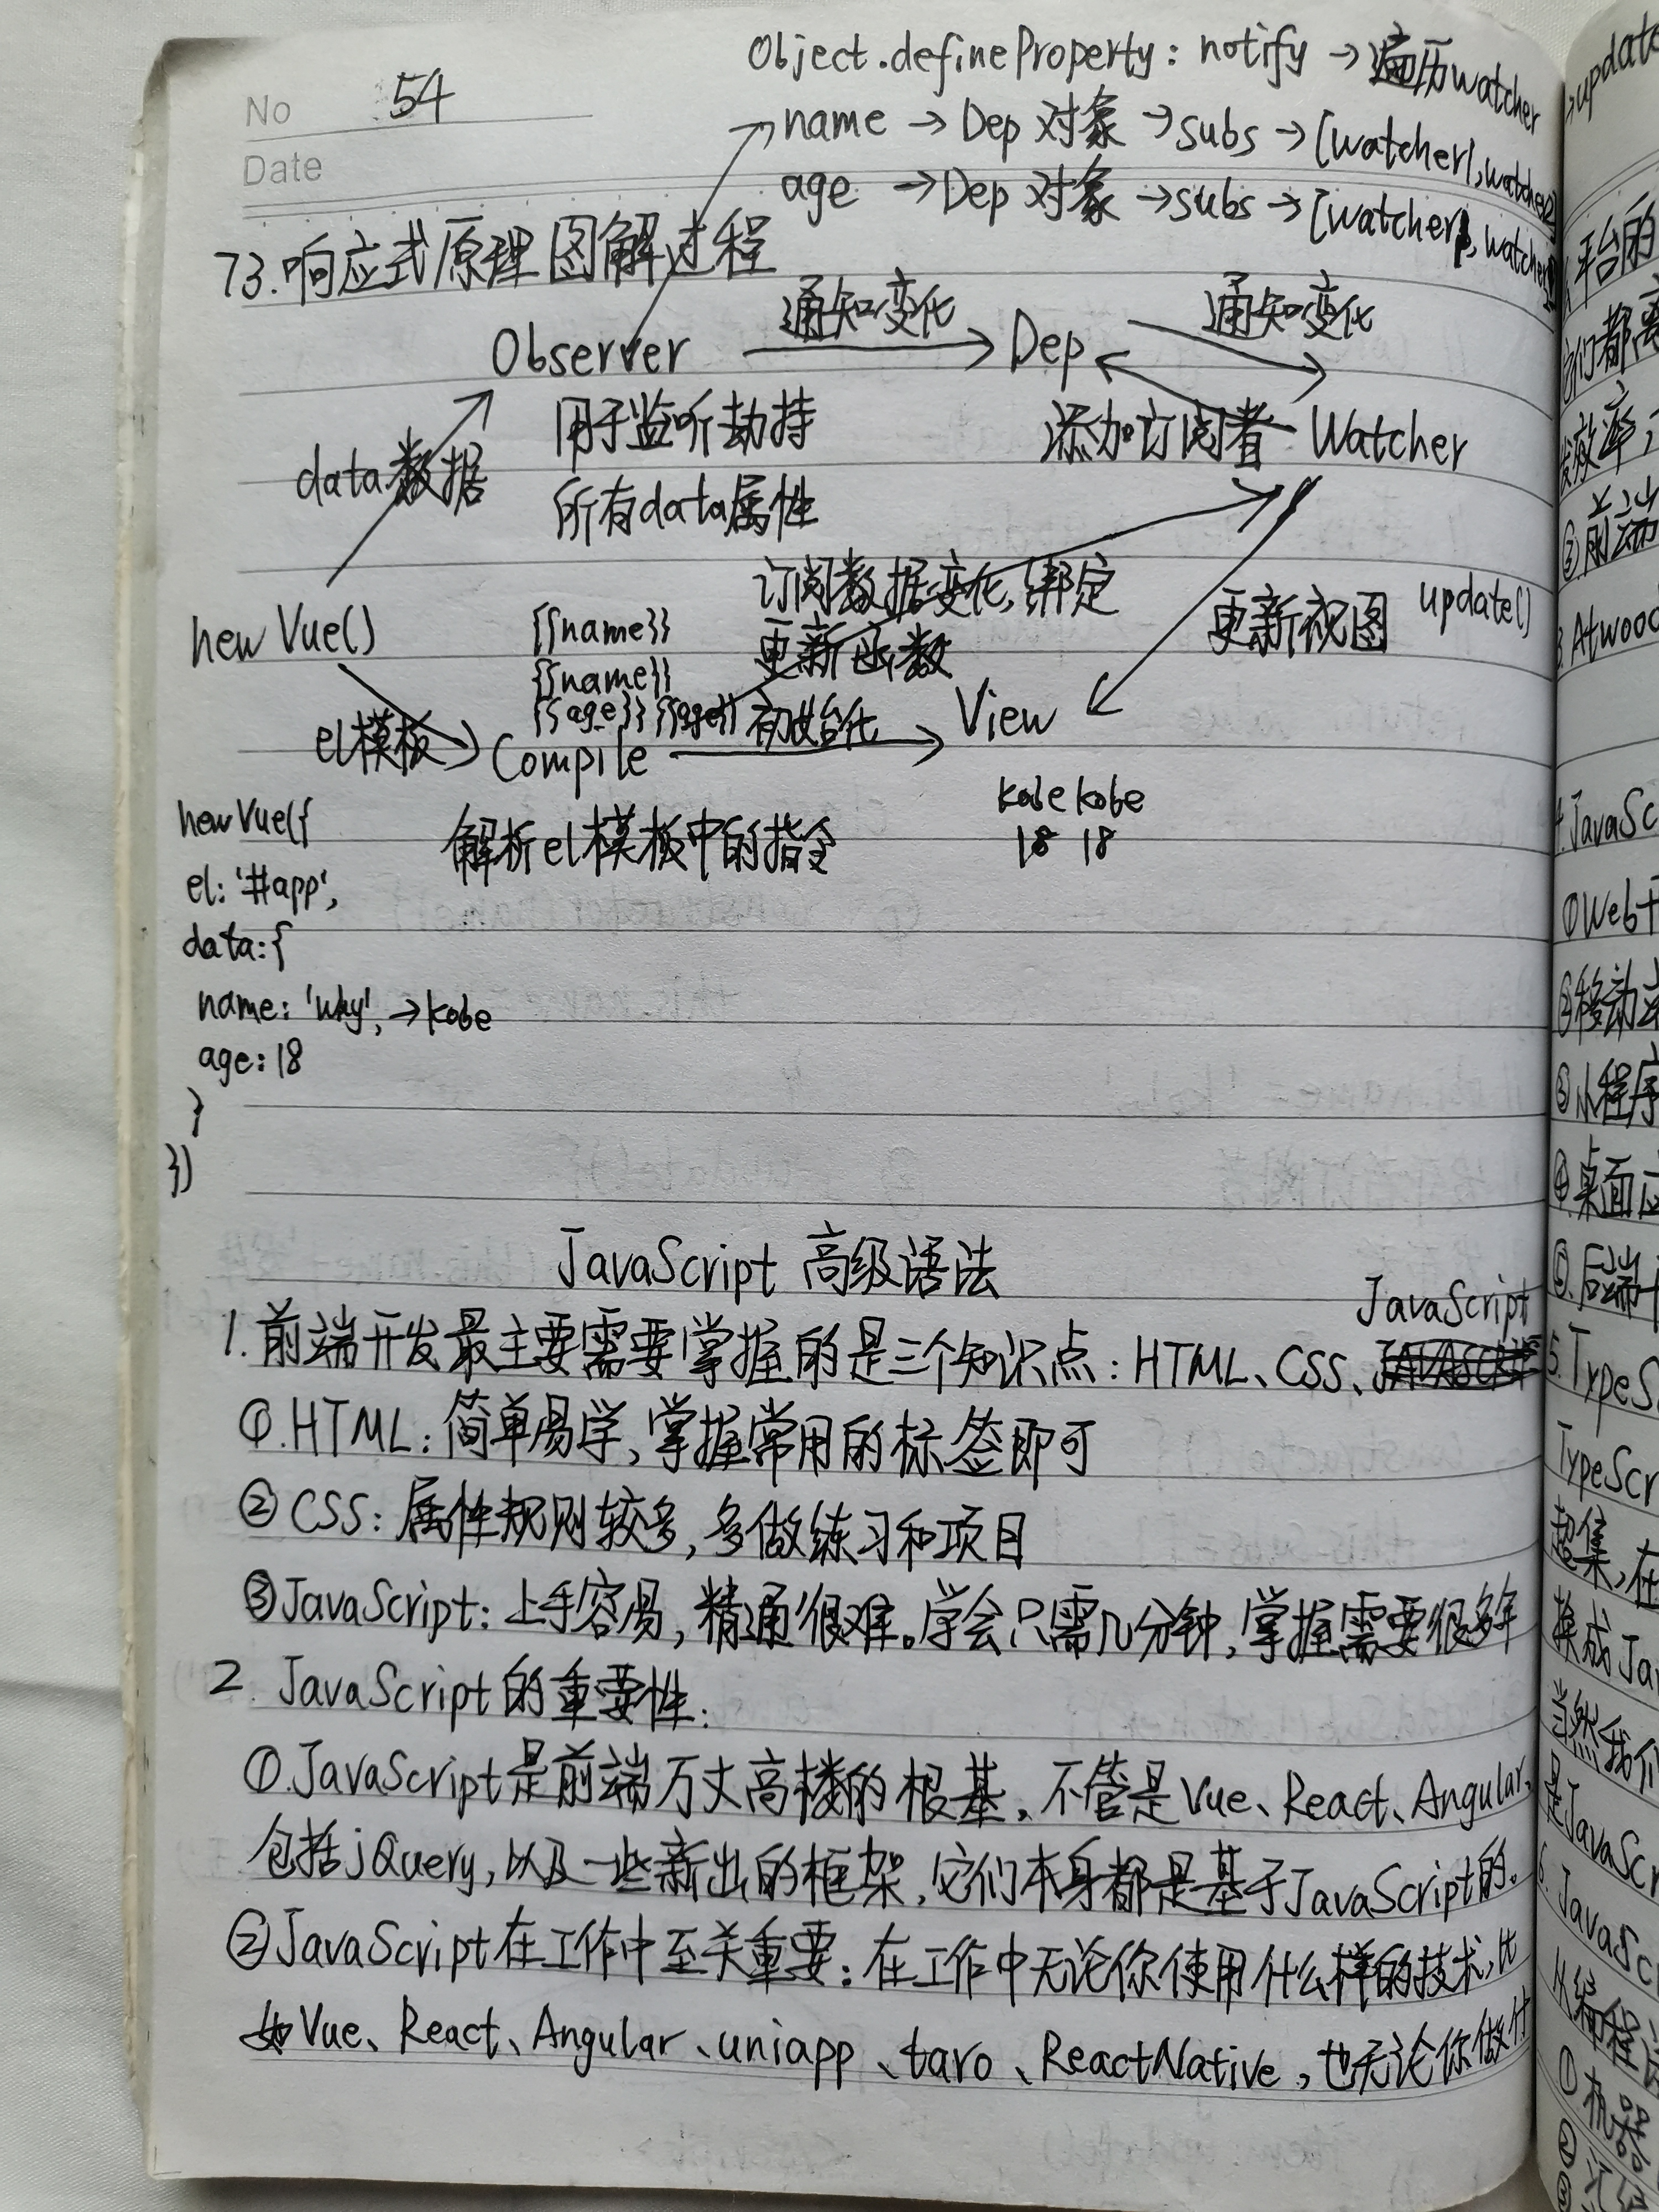 No 54
Date
Object.defineProperty: notify → 遍历watcher
name → Dep 对象 → subs → [watcher1, watcher2]
age → Dep 对象 → subs → [watcher, watcher
73.响应式原理图解过程
Observer 通知变化 Dep 通知变化
用于监听劫持
所有data属性
data数据
添加订阅者 Watcher
订阅数据变化,绑定
更新函数
更新视图 update()
new Vue()
{{name}}
{{name}}
{{age}} {{age}}
el模板
Compile 初始化 View
解析el模板中的指令
kobe kobe
18 18
new Vue({
el: '#app',
data: {
name: 'why', → kobe
age: 18
}
})
JavaScript 高级语法
1. 前端开发最主要需要掌握的是三个知识点: HTML、CSS、JavaScript
①.HTML: 简单易学,掌握常用的标签即可
② CSS: 属性规则较多,多做练习和项目
③JavaScript: 上手容易,精通很难。学会只需几分钟,掌握需要很多年
2. JavaScript的重要性:
①.JavaScript是前端万丈高楼的根基,不管是Vue、React、Angular,
包括jQuery,以及一些新出的框架,它们本身都是基于JavaScript的。
②JavaScript在工作中至关重要:在工作中无论你使用什么样的技术,比
如Vue、React、Angular、uniapp、taro、ReactNative,也无论你做什
平台的
们都离
发效率,
②前端
3.Atwood
4.JavaSc
①Web
②移动
③小程序
④桌面应
⑤.后端
5.TypeS
TypeScr
超集,在
换成Ja
当然我们
是JavaScr
6. JavaSc
从编程
①机器
②
③